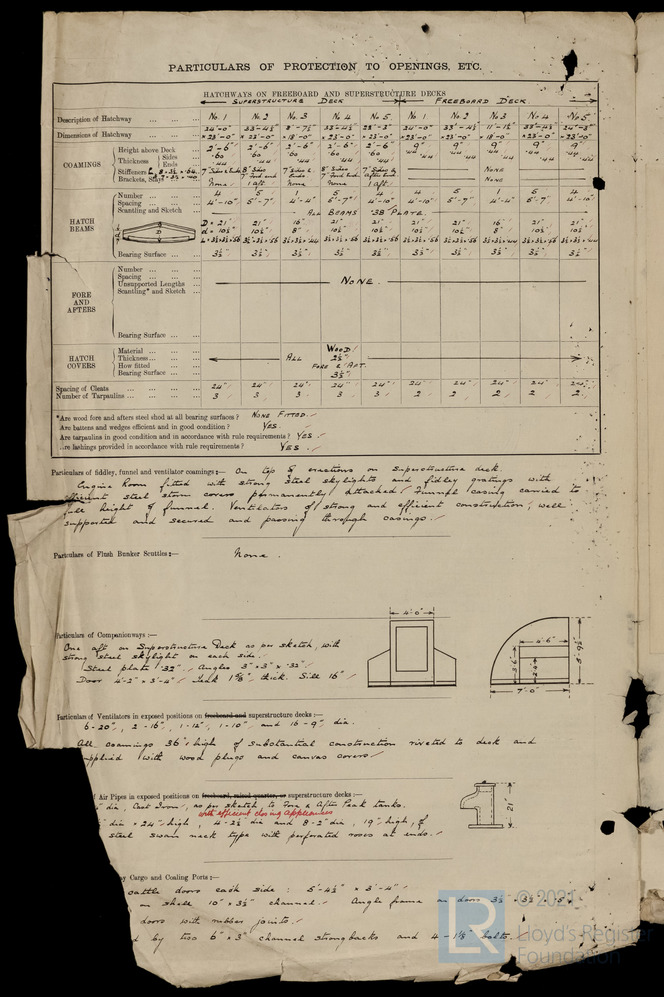 PARTICULARS OF PROTECTION TO OPENINGS, ETC.
HATCHWAYS ON FREEBOARD AND SUPERSTRUCTURE DECKS
SUPERSTRUCTURE DECK FREEBOARD DECK
Description of Hatchway No. 1 No. 2 No. 3 No. 4 No. 5 No. 1 No. 2 No. 3 No. 4 No. 5
Dimensions of Hatchway
COAMINGS
Height above Deck 2'-6" 2'-6" 2'-6" 2'-6" 2'-6" 9" 9" 9" 9" 9"
Thickness Sides .60 .60 .60 .60 .60 .44 .44 .44 .44 .44
Ends .44 .44 .44 .44 .44
Stiffeners NONE
Brackets, Stays None 1 aft None None 1 aft NONE
HATCH BEAMS
Number 4 5 1 5 4 4 5 1 5 4
Spacing 4'-10" 5'-7" 4'-4" 5'-7" 4'-10" 4'-10" 5'-7" 4'-4" 5'-7" 4'-10"
Scantling and Sketch ALL BEAMS .38 PLATE.
D = 21" 21" 16" 21" 21" 21" 21" 16" 21" 21"
d = 10½" 10½" 8" 10½" 10½" 10½" 10½" 8" 10½" 10½"
Bearing Surface 3½" 3½" 3½" 3½" 3½" 3½" 3½" 3½" 3½" 3½"
FORE AND AFTERS
Number
Spacing
Unsupported Lengths NONE.
Scantling* and Sketch
Bearing Surface
HATCH COVERS
Material WOOD
Thickness ALL 2½"
How fitted FORE & AFT.
Bearing Surface 3½"
Spacing of Cleats 24" 24" 24" 24" 24" 24" 24" 24" 24" 24"
Number of Tarpaulins 3 3 3 3 3 2 2 2 2 2
*Are wood fore and afters steel shod at all bearing surfaces? NONE FITTED.
Are battens and wedges efficient and in good condition? YES.
Are tarpaulins in good condition and in accordance with rule requirements? YES.
Are lashings provided in accordance with rule requirements? YES.
Particulars of fiddley, funnel and ventilator coamings:— On top of erections on superstructure deck.
Engine Room fitted with strong steel skylights and fidley gratings with
efficient steel storm covers permanently attached. Funnel casing carried to
full height of funnel. Ventilators of strong and efficient construction, well
supported and secured and passing through casings.
Particulars of Flush Bunker Scuttles:— None.
Particulars of Companionways:—
One aft on Superstructure Deck as per sketch, with
strong steel skylight on each side.
Steel plate .32". Angles 3" x 3" x .32"
Door 4'-2" x 3'-4" Teak thick. Sill 16"
4'-0"
4'-6"
3'-6"
7'-0"
Particulars of Ventilators in exposed positions on freeboard and superstructure decks:—
6-20", 2-16", 1-12", 1-10", and 16-9" dia.
All coamings 36" high of substantial construction riveted to deck and
supplied with wood plugs and canvas covers
Air Pipes in exposed positions on freeboard, raised quarter, or superstructure decks:—
dia, Cast Iron, as per sketch, to Fore & After Peak tanks.
with efficient closing appliances
dia x 24" high, 4-2½" dia and 8-2" dia, 19" high, of
steel swan neck type with perforated roses at ends.
21"
Cargo and Coaling Ports:—
cattle doors each side: 5'-4½" x 3'-4"
on shell 10" x 3½" channel. Angle frame on doors
doors with rubber joints.
by two 6" x 3" channel strongbacks and 4-1⅛" bolts.
LR
© 2021
Lloyd's Register
Foundation